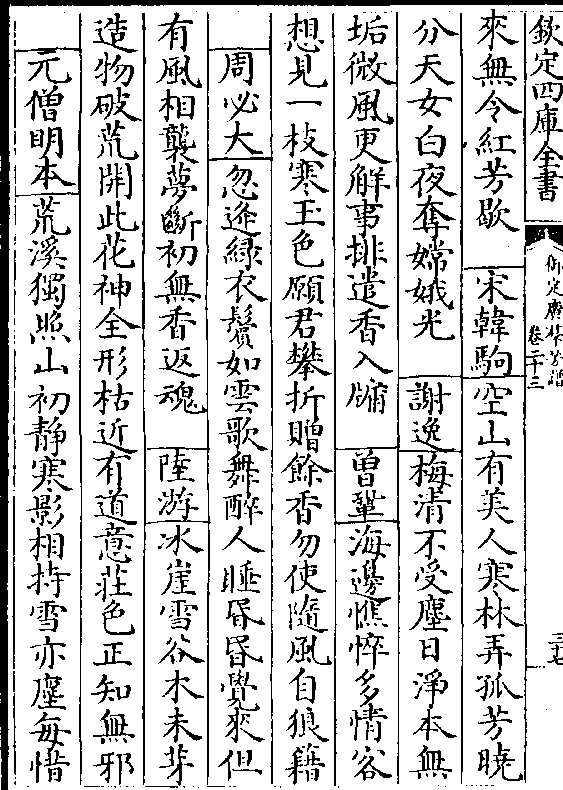 欽定四庫全書
御定廣羣芳譜
卷二十三
三十七
來無令紅芳歇　宋韓駒空山有美人寒林弄孤芳曉
分天女白夜奪嫦娥光　謝逸梅清不受塵日淨本無
垢微風更解事排遣香入牖　曽鞏海邊憔悴多情客
想見一枝寒玉色願君攀折贈餘香勿使隨風自狼籍
周必大忽逢緑衣鬟如雲歌舞醉人睡昏昏覺來但
有風相襲夢斷初無香返魂　陸游冰崖雪谷木未芽
造物破荒開此花神全形枯近有道意莊色正知無邪
元僧明本荒溪獨照山初靜寒影相持雪亦塵每惜